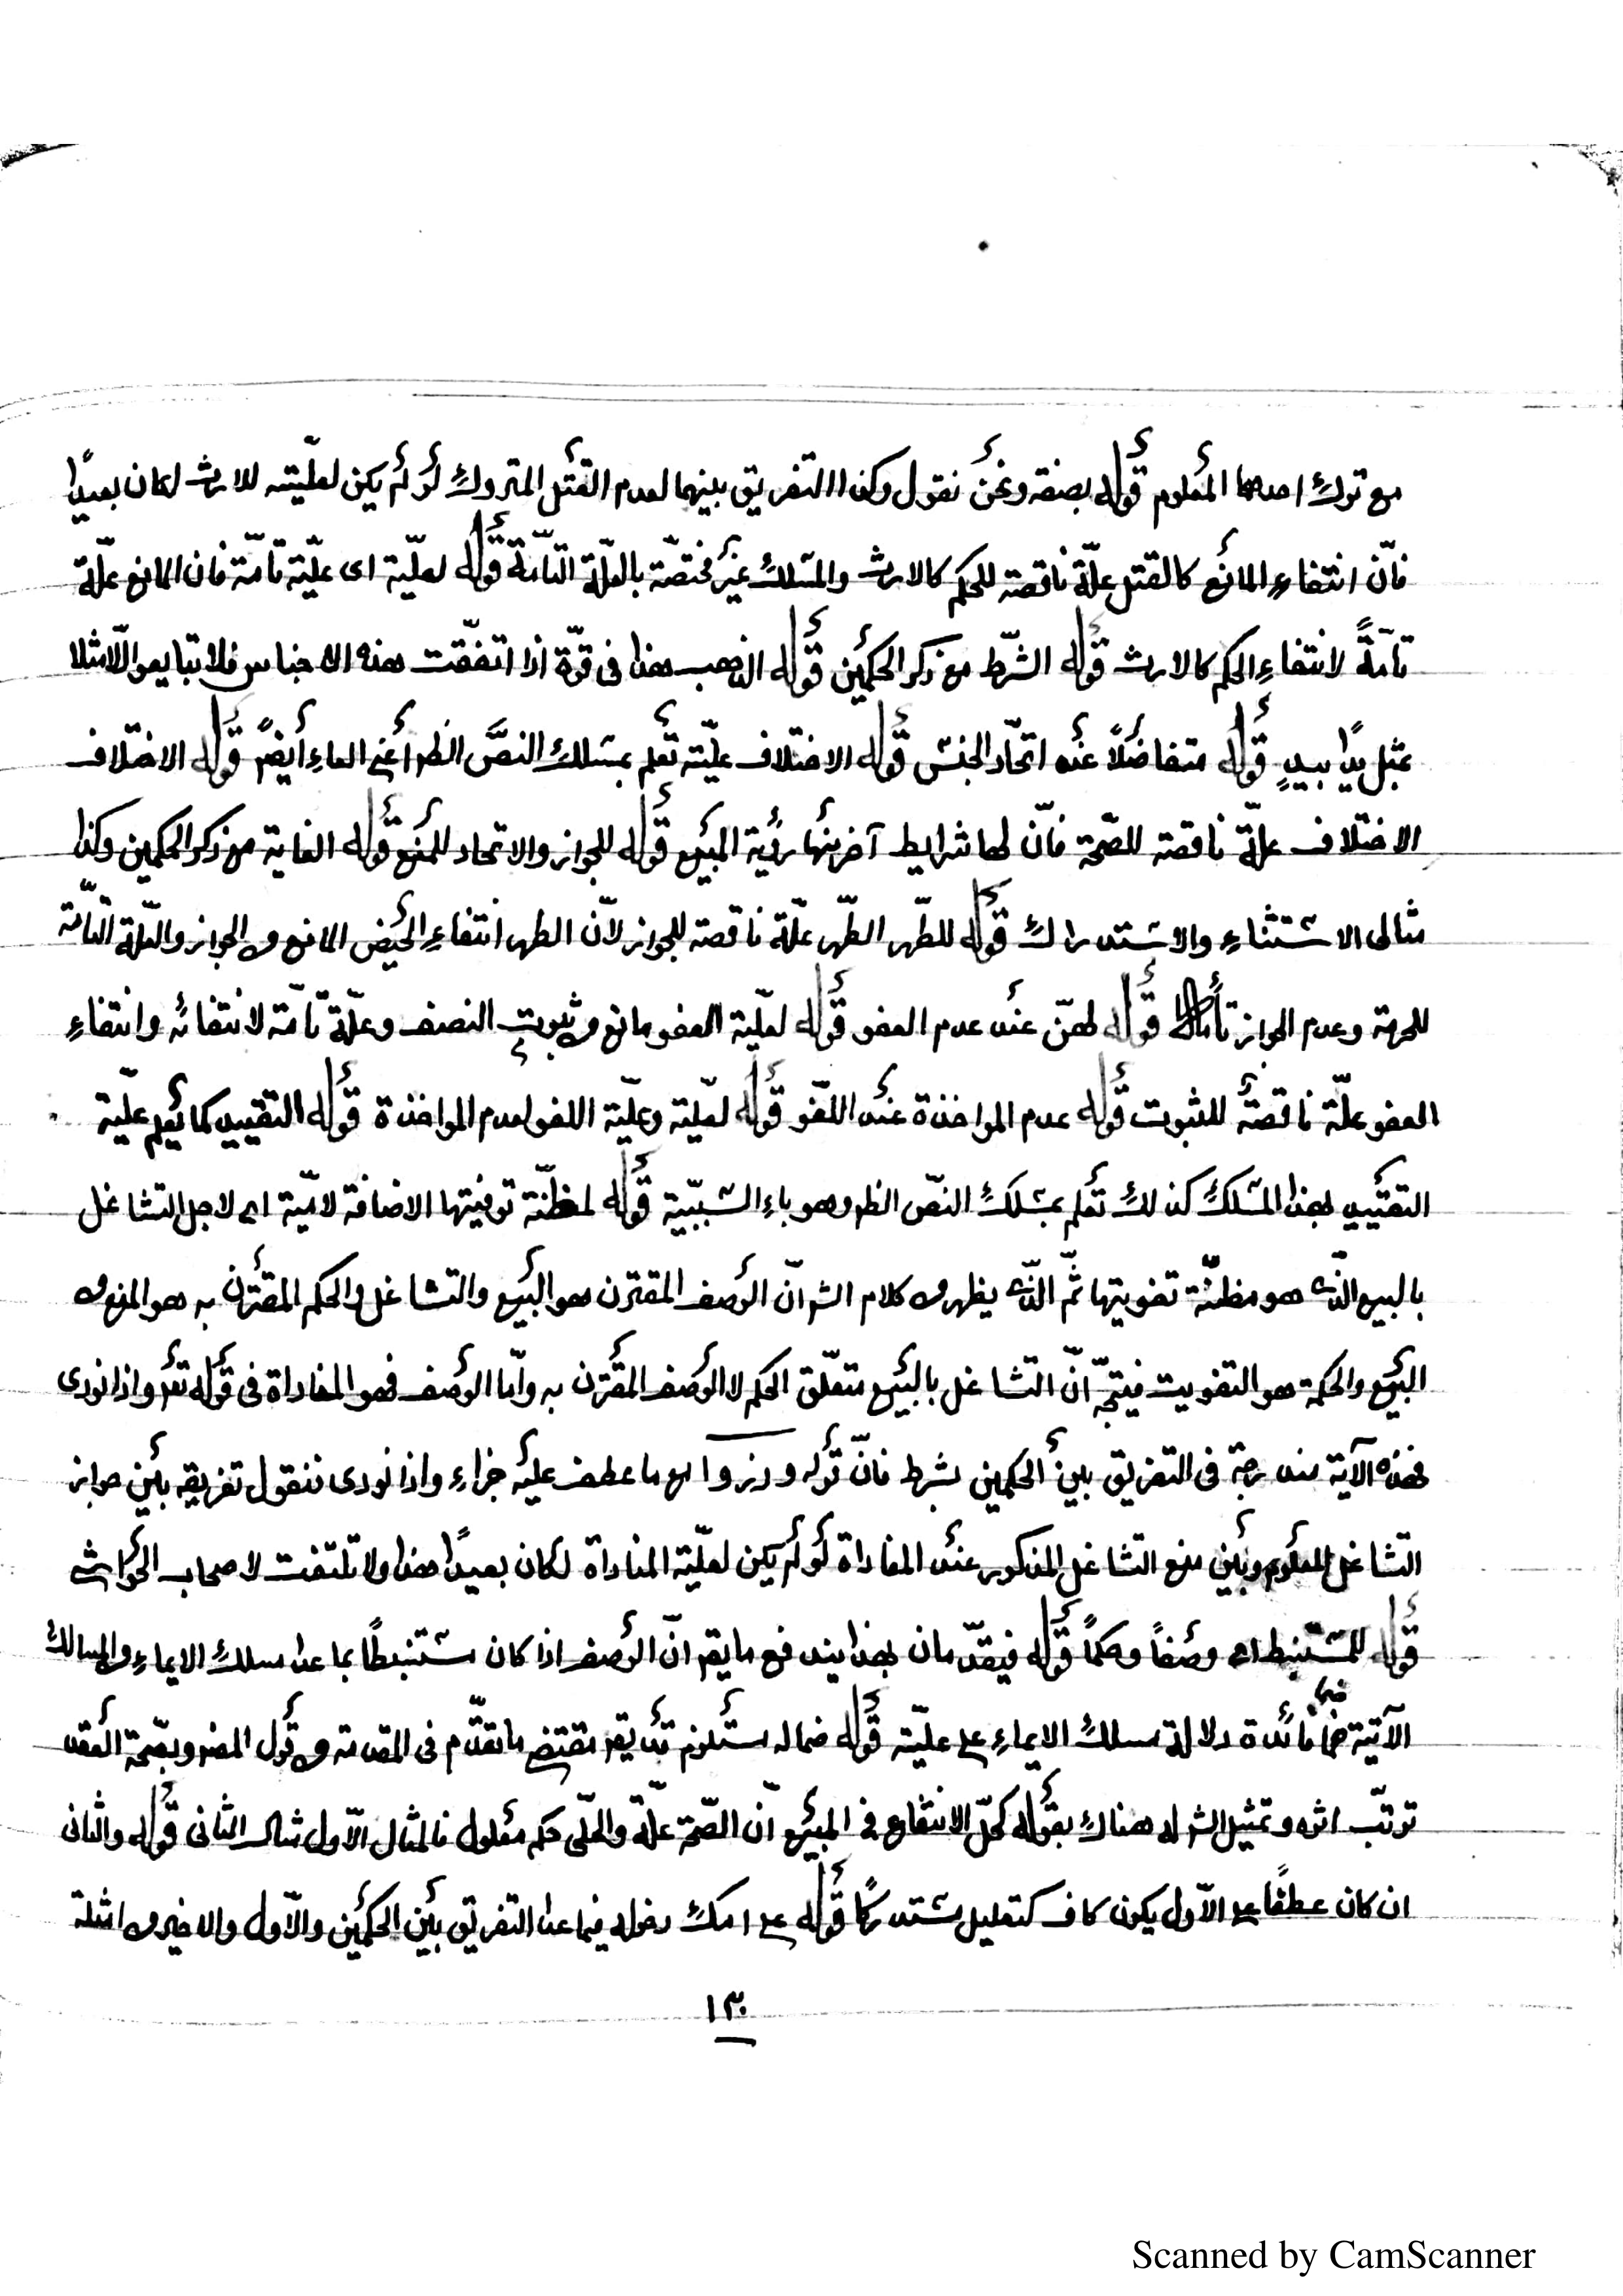 مع ترك احدهما المعلوم قوله بصفة ونحن نقول وكذا التفريق بينهما لعدم القتل المتروك لو لم يكن لعليته للارث لكان بعيدًا
فانّ انتفاء المانع كالقتل علّة ناقصة للحكم كالارث والمسلك غير مختصّة بالعلّة التامّة قوله لعلّية اى علّية تامّة فان المانع علّة
تامّةً لانتفاءِ الحكم كالارث قوله الشّرط مع ذكر الحكمين قوله الذهب هذا فى قوّة اذا اتفقت هذه الاجناس فلا تبايعوا الّا مثلا
بمثل يدًا بيدٍ قوله متفاضلًا عند اتحّاد الجنس قوله الاختلاف علّيته تعلم بمسلك النصّ الظه اعنى الفاءِ ايضً قوله الاختلاف
الاختلاف علّة ناقصة للصّحة فانّ لها شرايط آخر منها رؤية المبيع قوله للجواز والاتحاد للمنع قوله الغاية مع ذكر الحكمين وكذا
مثالى الاستثناءِ والاستدراك قوله للطّهر الطّهر علّة ناقصة للجواز لانّ الطهر انتفاءِ الحيض المانع من الجواز والعلّة التّامّة
للحرمة وعدم الجواز قوله لهنّ عند عدم العفو قوله لعلّية العفو مانع من ثبوت النصف وعلّة تامّة لانتفائه وانتفاءِ
العفو علّة ناقصة للثبوت قوله عدم المؤاخذة عند اللّغو قوله لعلّية وعلّية اللغو لعدم المؤاخذة قوله التقييد كما يعلم علّية
التقييد بهذا المسلك كذلك تعلم بمسلك النصّ الظه وهو باءِ السببيّة قوله لمظنّة تفويتها الاضافة لاميّة اى لاجل التشاغل
بالبيع الذّى هو مظنّة تفويتها ثمّ الذّى يظهر من كلام الش انّ الوصف المقترن هو البيع والتشاغل والحكم المقترن به هو المنع من
البيع والحكمة هو التفويت فيتجّه انّ التشاغل بالبيع متعلّق الحكم لا الوصف المقترن به وامّا الوصف فهو المناداة فى قوله تع واذا نودى
فهذه الآية مندرجة فى التفريق بين الحكمين بشرط فانّ قوله وذروا مع ما عطف عليه جزاءِ واذا نودى فنقول تفريقه بين جواز
التشاغل المعلوم وبين منع التشاغل المذكور عند المناداة لو لم يكن لعلّية المناداة لكان بعيدًا هذا ولا تلتفت لاصحاب الحواشى
قوله المستنبط اى وصفاً وحكماً قوله فيقدّمان بهذا يندفع ما يق انّ الوصف اذا كان مستنبطًا بما عدا مسلك الايماءِ من المسالك
الآتية فما فائدة دلالة مسلك الايماءِ على علّيته قوله فما له مستلزم قد يق مقتضى ما تقدّم فى المقدمة من قول المص وبصّحة العقد
ترتّب اثره وتمثيل الش له هناك بقوله كحلّ الانتفاع فى المبيع انّ الصّحة علّة والحلّ حكم معلول فالمثال الاّول مثال الثانى قوله والثانى
ان كان عطفًا على الاّول يكون كاف كتعليل مستدركًا قوله على دخوله فيما عدا التفريق بين الحكمين والاّول والاخير من امثلة
١٣٠
Scanned by CamScanner